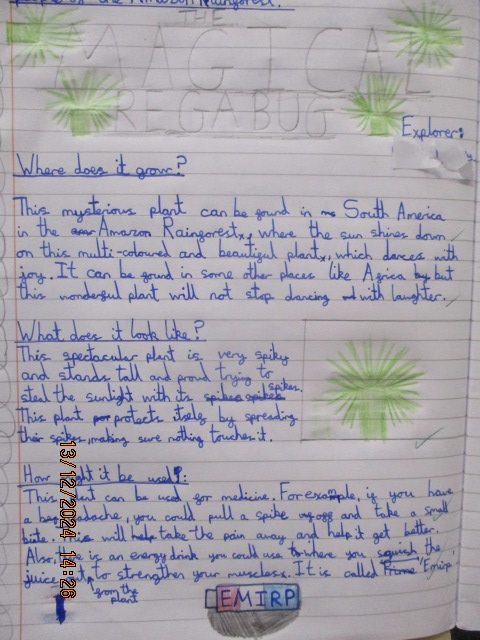 people of the Amazon Rainforest.
THE
MAGICAL
REGABUG
Explorer:
Where does it grow?
This mysterious plant can be found in South America
in the Amazon Rainforest, where the sun shines down
on this multi-coloured and beautiful plant, which dances with
joy. It can be found in some other places like Africa but
this wonderful plant will not stop dancing with laughter.
What does it look like?
This spectacular plant is very spiky
and stands tall and proud trying to
steal the sunlight with its spikes.
This plant protects itself by spreading
their spikes, making sure nothing touches it.
How it be used?:
This can be used for medicine. For example, if you have
a headache, you could pull a spike off and take a small
bite. will help take the pain away and help it get better.
Also, is an energy drink you could use where you squish the
juice to strengthen your muscless. It is called Emirp.
from the
plant
EMIRP
13/12/2024 14:26